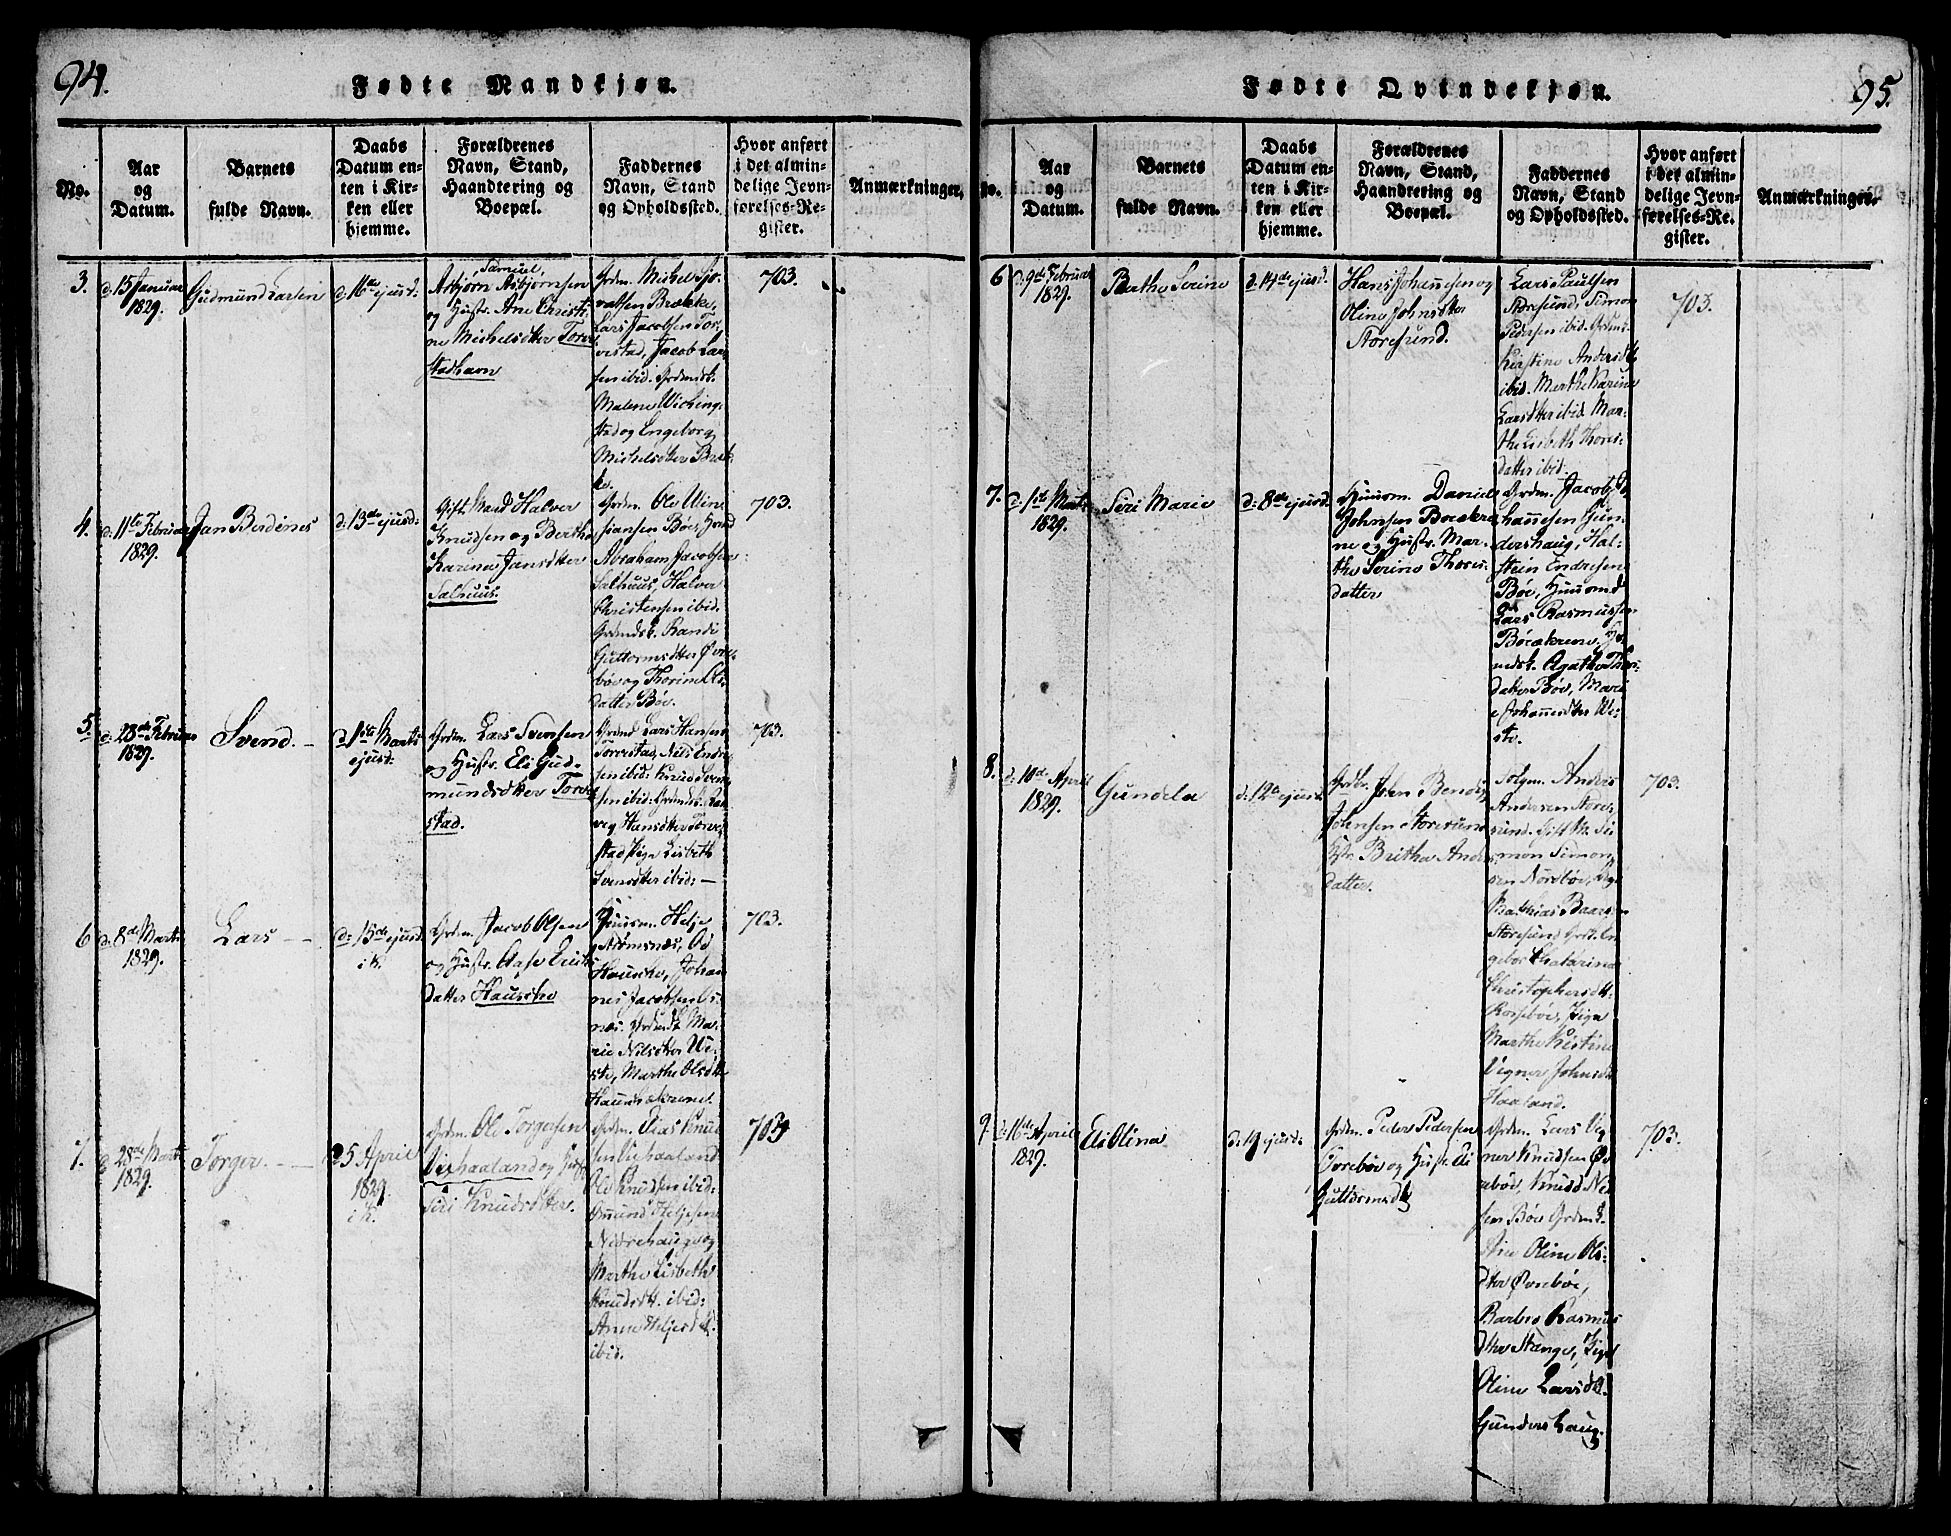 94.
Fødte Mandkjøn.
No.
Aar
og
Datum.
Barnets
fulde Navn.
Daabs
Datum en-
ten i Kir-
ken eller
hjemme.
Forældrenes
Navn, Stand,
Haandtering og
Boepæl.
Faddernes
Navn, Stand
og Opholdssted.
Hvor anført
i det almin-
delige Jevn-
førelses-Re-
gister.
Anmærkninger.
3.
d: 15 Januar
1829.
Gudmund Larsen
d: 16de ejusd:
Samuel
Asbjørn Asbjørnsen
og Hustr. Ane Christi-
ne Michelsdtter Torve
stadhavn
Grdm. Michel
vattsen Brække,
Lars Jacobsen Tor-
vestad, Jacob Lar-
sen ibid. Grdmdsk.
Malene Wiching-
stad og Engeborg
Michelsdtter Bræk-
ke.
703.
4.
d: 11te Februar
1829.
Jan Berdines
d: 13de ejusd:
Gift Mand Halver
Knudsen og Berthe
Karine Jansdtter
Salhuus.
Grdm. Ole
siansen Boe,
Abraham Jacobsen
Salhuus, Halver
Christensen ibid.
Grdmdsk. Randi
Guttormsdtter Øvre-
bøe og Thorine Els-
datter Bøe.
703.
5.
d: 28de Februar
1829.
Svend. —
d: 1ste Marts
ejusd:
Grdm. Lars Svensen
og Hustr. Eli Gud-
mundsdtter Torve
stad.
Grdmd Lars Hansen
Torvestad, Nils Endre
sen ibid: Knud Sven-
sen ibid: Grdmdsk.
Hansdtter Torve-
stad Pige Lisbeth
Svensdtter ibid: —
703.
6
d: 8de Marts
1829.
Lars — —
d: 15de ejusd.
i K.
Grdm. Jacob Olsen
og Hustr. Aase Erichs
datter Hauske
Huusm. Helje
Strømsnæs,
Hauske, Johan-
nes Jacobsen
Grdmdsk. Ma-
rie Nilsdtter We-
ste, Marthe Olsdtr
703.
7.
d: 28de Marts
1829.
Torger — —
d 5 April
1829.
i K.
Grdm. Ole Torgersen
Vishaaland og Hustr
Siri Knudsdtter.
Grdm. Elias Knud
sen Vishaaland
Ole Knudsen ibid:
Omund Heljesen
Nedrehauge og
Marthe Lisbeth
Knudsdtr. ibid:
Anne Heljesdtr.
ibid.
703
95.
Fødte Qvindekjøn.
No.
Aar
og
Datum.
Barnets
fulde Navn.
Daabs
Datum en-
ten i Kir-
ken eller
hjemme.
Forældrenes
Navn, Stand,
Haandtering og
Boepæl.
Faddernes
Navn, Stand
og Opholdssted.
Hvor anført
i det almin-
delige Jevn-
førelses-Re-
gister.
Anmærkninger.
6
d: 9de Februar
1829.
Berthe Serine
d: 14de ejusd.
Hans Johannesen og
Oline Johnsdtter
Storesund.
Lars Paulsen
Storesund, Simon
Pedersen ibid. Grdmdsk
Kirstine Andersdtr
ibid. Marthe Karine
Larsdtter ibid. Mar-
the Lisbeth Thores-
datter ibid.
703.
7.
d: 1ste Marts
1829.
Seri Marie
d: 8de ejusd.
Huusm. Daniel
Johnsen Boeækre
ne og Hustr. Mar-
the Serine Thores-
datter
Grdm. Jacob Jo
hannesen Gun-
dershaug, Hal-
stein Endresen
Bøe, Huusmd
Lars Rasmussen
Bøeækrene,
Agathe Thors-
datter Bøe, Mari
e Johannesdtter We-
ste.
8.
d: 10de April
1829.
Gundela
d: 12te ejusd.
John Bendix
Johnsen Storesund
Hstr. Britha Anders
datter.
Anders
Andersen Store-
sund. Gift M. Si
mon Simon-
sen Nordbøe,
Mathias Baars-
Storesund En
gebor Katarina
Christophersdtr.
Rossebøe, Pige
Marthe Kistine
Vigner Johnsdtr
Haaland.
703.
9.
d: 16de April
1829.
Eli Olina
d: 19 ejusd:
Grdm. Peder Pedersen
Ovrebøe og Hustr. Eli
Guttormsdtr
Grdm. Lars Vig
ner Knudsen Øv
rebøe, Knud Nil-
sen Bøe Grdmk.
Ane Oline Ols-
dtter Øvrebøe,
Barbro Rasmus
dtter Stange, Pige
Oline Larsdtr.
Gundershaug.
703.